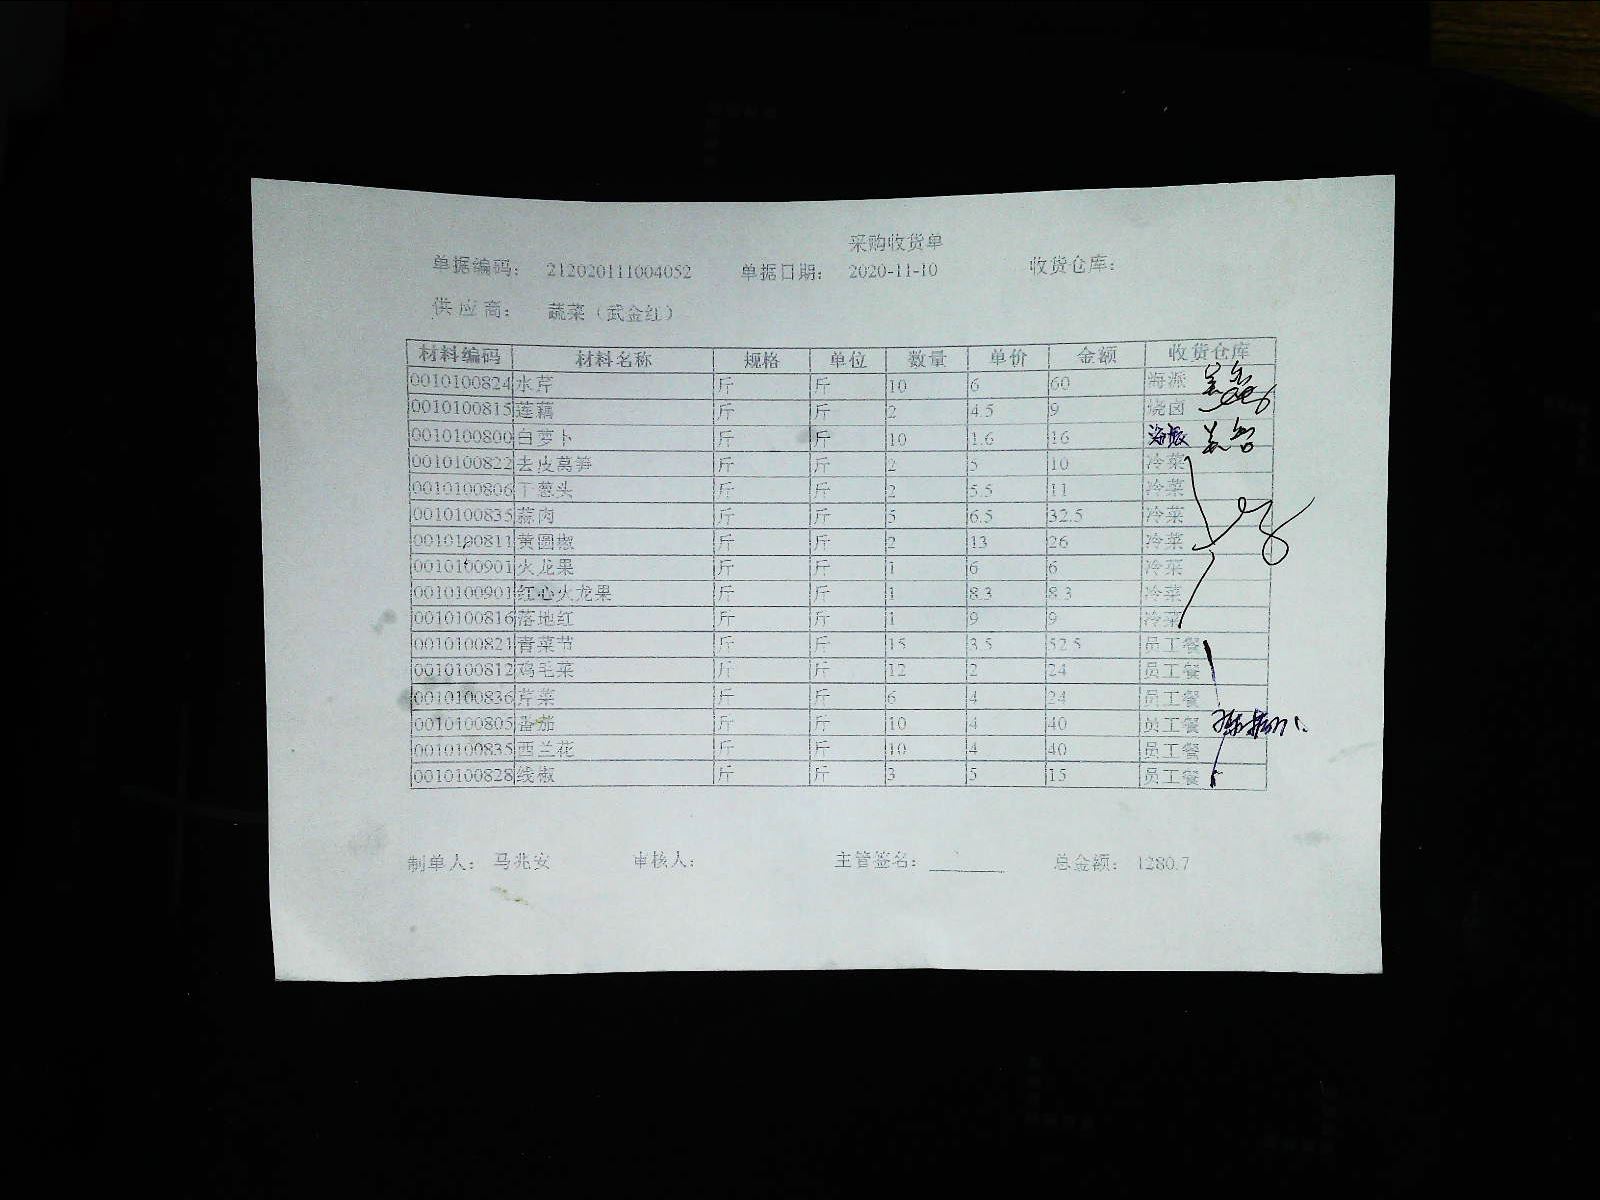 采购收货单
单据编码： 212020111004052 单据日期： 2020-11-10 收货仓库：
供应商： 蔬菜（武金红）
材料编码 材料名称 规格 单位 数量 单价 金额 收货仓库
0010100824 水芹 斤 斤 10 6 60 海派
0010100815 莲藕 斤 斤 2 4.5 9 烧卤
0010100800 白萝卜 斤 斤 10 1.6 16 海派
0010100822 去皮莴笋 斤 斤 2 5 10 冷菜
0010100806 干葱头 斤 斤 2 5.5 11 冷菜
0010100835 蒜肉 斤 斤 5 6.5 32.5 冷菜
0010100811 黄圆椒 斤 斤 2 13 26 冷菜
0010100901 火龙果 斤 斤 1 6 6 冷菜
0010100901 红心火龙果 斤 斤 1 8.3 8.3 冷菜
0010100816 落地红 斤 斤 1 9 9 冷菜
0010100821 青菜节 斤 斤 15 3.5 52.5 员工餐
0010100812 鸡毛菜 斤 斤 12 2 24 员工餐
0010100836 芹菜 斤 斤 6 4 24 员工餐
0010100805 番茄 斤 斤 10 4 40 员工餐
0010100835 西兰花 斤 斤 10 4 40 员工餐
0010100828 线椒 斤 斤 3 5 15 员工餐
制单人： 马兆安 审核人： 主管签名： 总金额： 1280.7